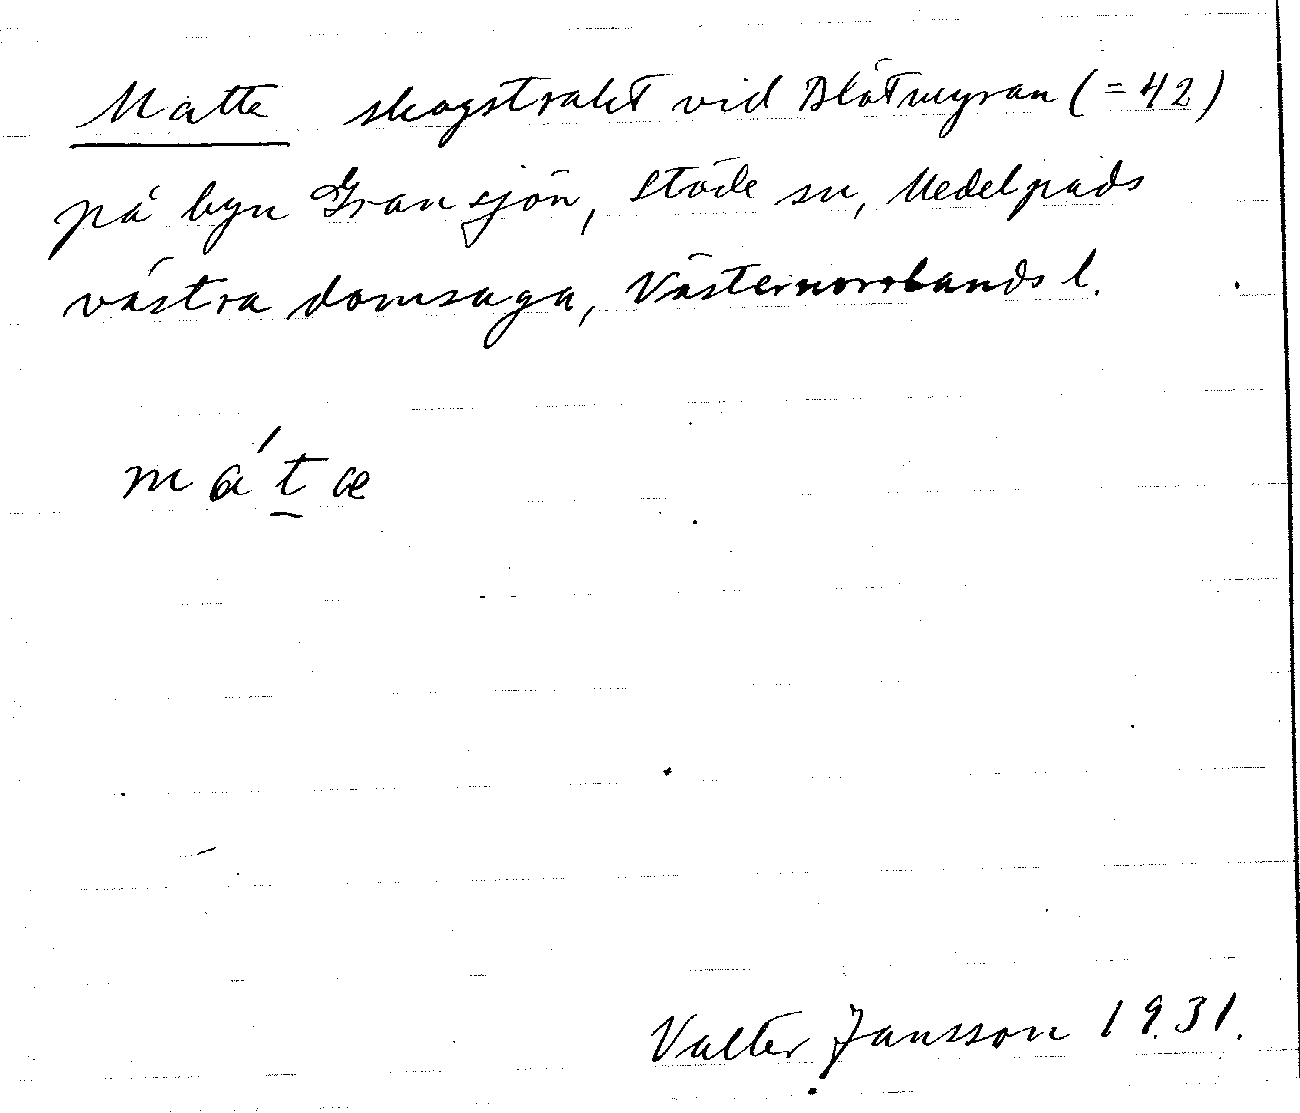 Matte skogstrakt vid Blötmyran (= 42)
på byn Gransjön, Stöde sn, Medelpads
västra domsaga, Västernorrlands l.
mátæ
Valter Jansson 1931.